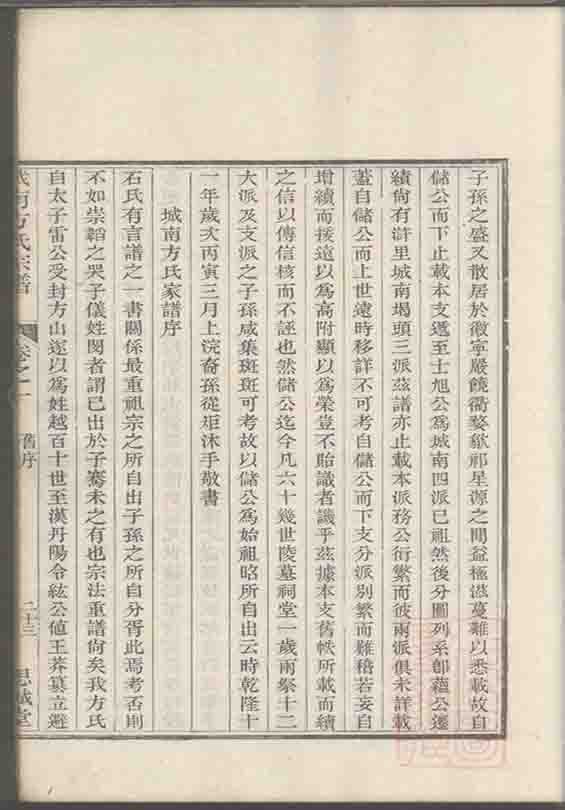 子孫之盛又散居於徽寧嚴饒衢婺歙祁星源之間益極滋蔓難以悉載故自
儲公而下止載本支遞至士旭公爲城南四派已祖然後分圖列系卽蘊公遷
績尙有滸里城南堨頭三派茲譜亦止載本派務公衍繁而彼兩派俱未詳載
蓋自儲公而上世遠時移詳不可考自儲公而下支分派別繁而難稽若妄自
增續而援遠以爲高附顯以爲榮豈不貽識者譏乎茲據本支舊帙所載而續
之信以傳信核而不誣也然儲公迄今凡六十幾世陵墓祠堂一歲兩祭十二
大派及支派之子孫咸集斑斑可考故以儲公爲始祖昭所自出云時乾隆十
一年歲次丙寅三月上浣裔孫從矩沐手敬書
城南方氏家譜序
石氏有言譜之一書關係最重祖宗之所自出子孫之所自分胥此焉考否則
不如崇韜之哭子儀姓閔者謂已出於子騫未之有也宗法重譜尙矣我方氏
自太子雷公受封方山遂以爲姓越百十世至漢丹陽令紘公値王莽篡立避
城南方氏宗譜 卷之一 舊序 二十三 思誠堂